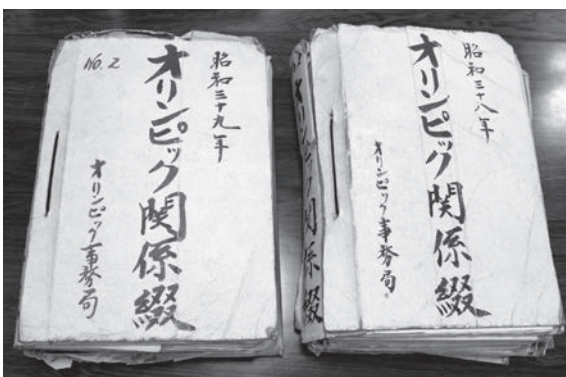 No. 2
昭和三十九年
オリンピック関係綴
オリンピック事務局
昭和三十八年
オリンピック関係綴
オリンピック事務局
オリンピック関係綴